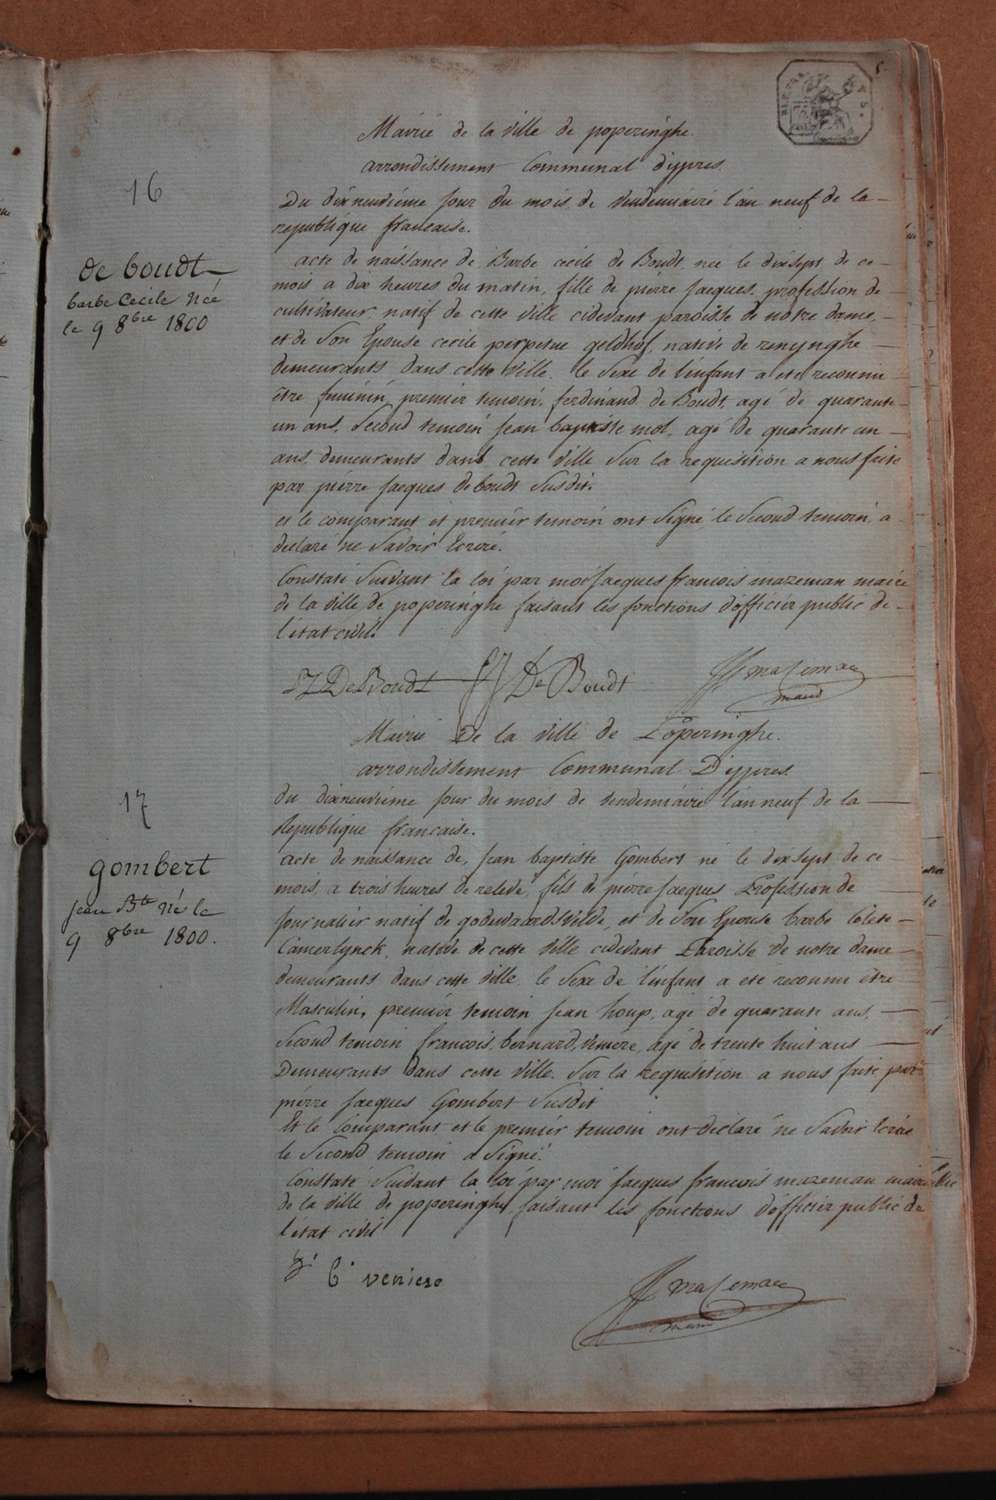 5.
Mairie de la ville de poperinghe.
arrondissement Communal d'ypres.
16
Du dixneuvième jour du mois de Vendemiaire l'an neuf de la
republique francaise.
de boudt
barbe Cecile née
le 9 8bre 1800
acte de naissance de Barbe cecile de Boudt, née le dixsept de ce
mois a dix heures du matin, fille de pierre jaeques, profession de
cultivateur natif de cette ville cidevant paroisse de notre dame,
et de Son Epouse cecile perpetue geldhof, native de renynghe
demeurants dans cette ville. le Sexe de l'enfant a eté reconnu
être feminin, premier temoin, ferdinand de Boudt, agé de quarante
un ans, Second temoin jean baptiste mol, agé de quarante un
ans, demeurants dans cette ville Sur la requisition a nous faite
par pierre jaeques de boudt Susdit.
et le comparant et premier temoin ont Signé le Second temoin a
declaré ne Savoir Ecrire.
Constaté Suivant la loi par moi jaeques francois mazeman maire
de la ville de poperinghe faisant les fonctions d'officier public de
l'état civil.
De Boudt De Boudt mazeman
maire
Mairie De la ville de Poperinghe.
arrondissement Communal D'ypres
17
du dixneuvième jour du mois de vendemiaire l'an neuf de la
Republique francaise.
gombert
jean Bte né le
9 8bre 1800.
acte de naissance de, jean baptiste Gombert né le dixsept de ce
mois, a trois heures de relevé, fils de pierre jaeques Profession de
journalier natif de godewaardsvelde, et de Son Epouse barbe colete
Camerlynck, native de cette ville cidevant Paroisse de notre dame
demeurants dans cette ville. le Sexe de l'enfant a eté reconnu être
Masculin, premier temoin jean houp, agé de quarante ans,
Second temoin francois, bernard, veniere, agé de trente huit ans
Demeurants dans cette ville. Sur la requisition a nous faite par
pierre jaeques Gombert Susdit
Et le Comparant et le premier temoin ont declaré ne Savoir Ecrire
le Second temoin a Signé.
Constaté Suivant la loi par moi jaeques francois mazeman maire
de la ville de poperinghe faisant les fonctions d'officier public de
l'état civil
veniere mazeman
maire